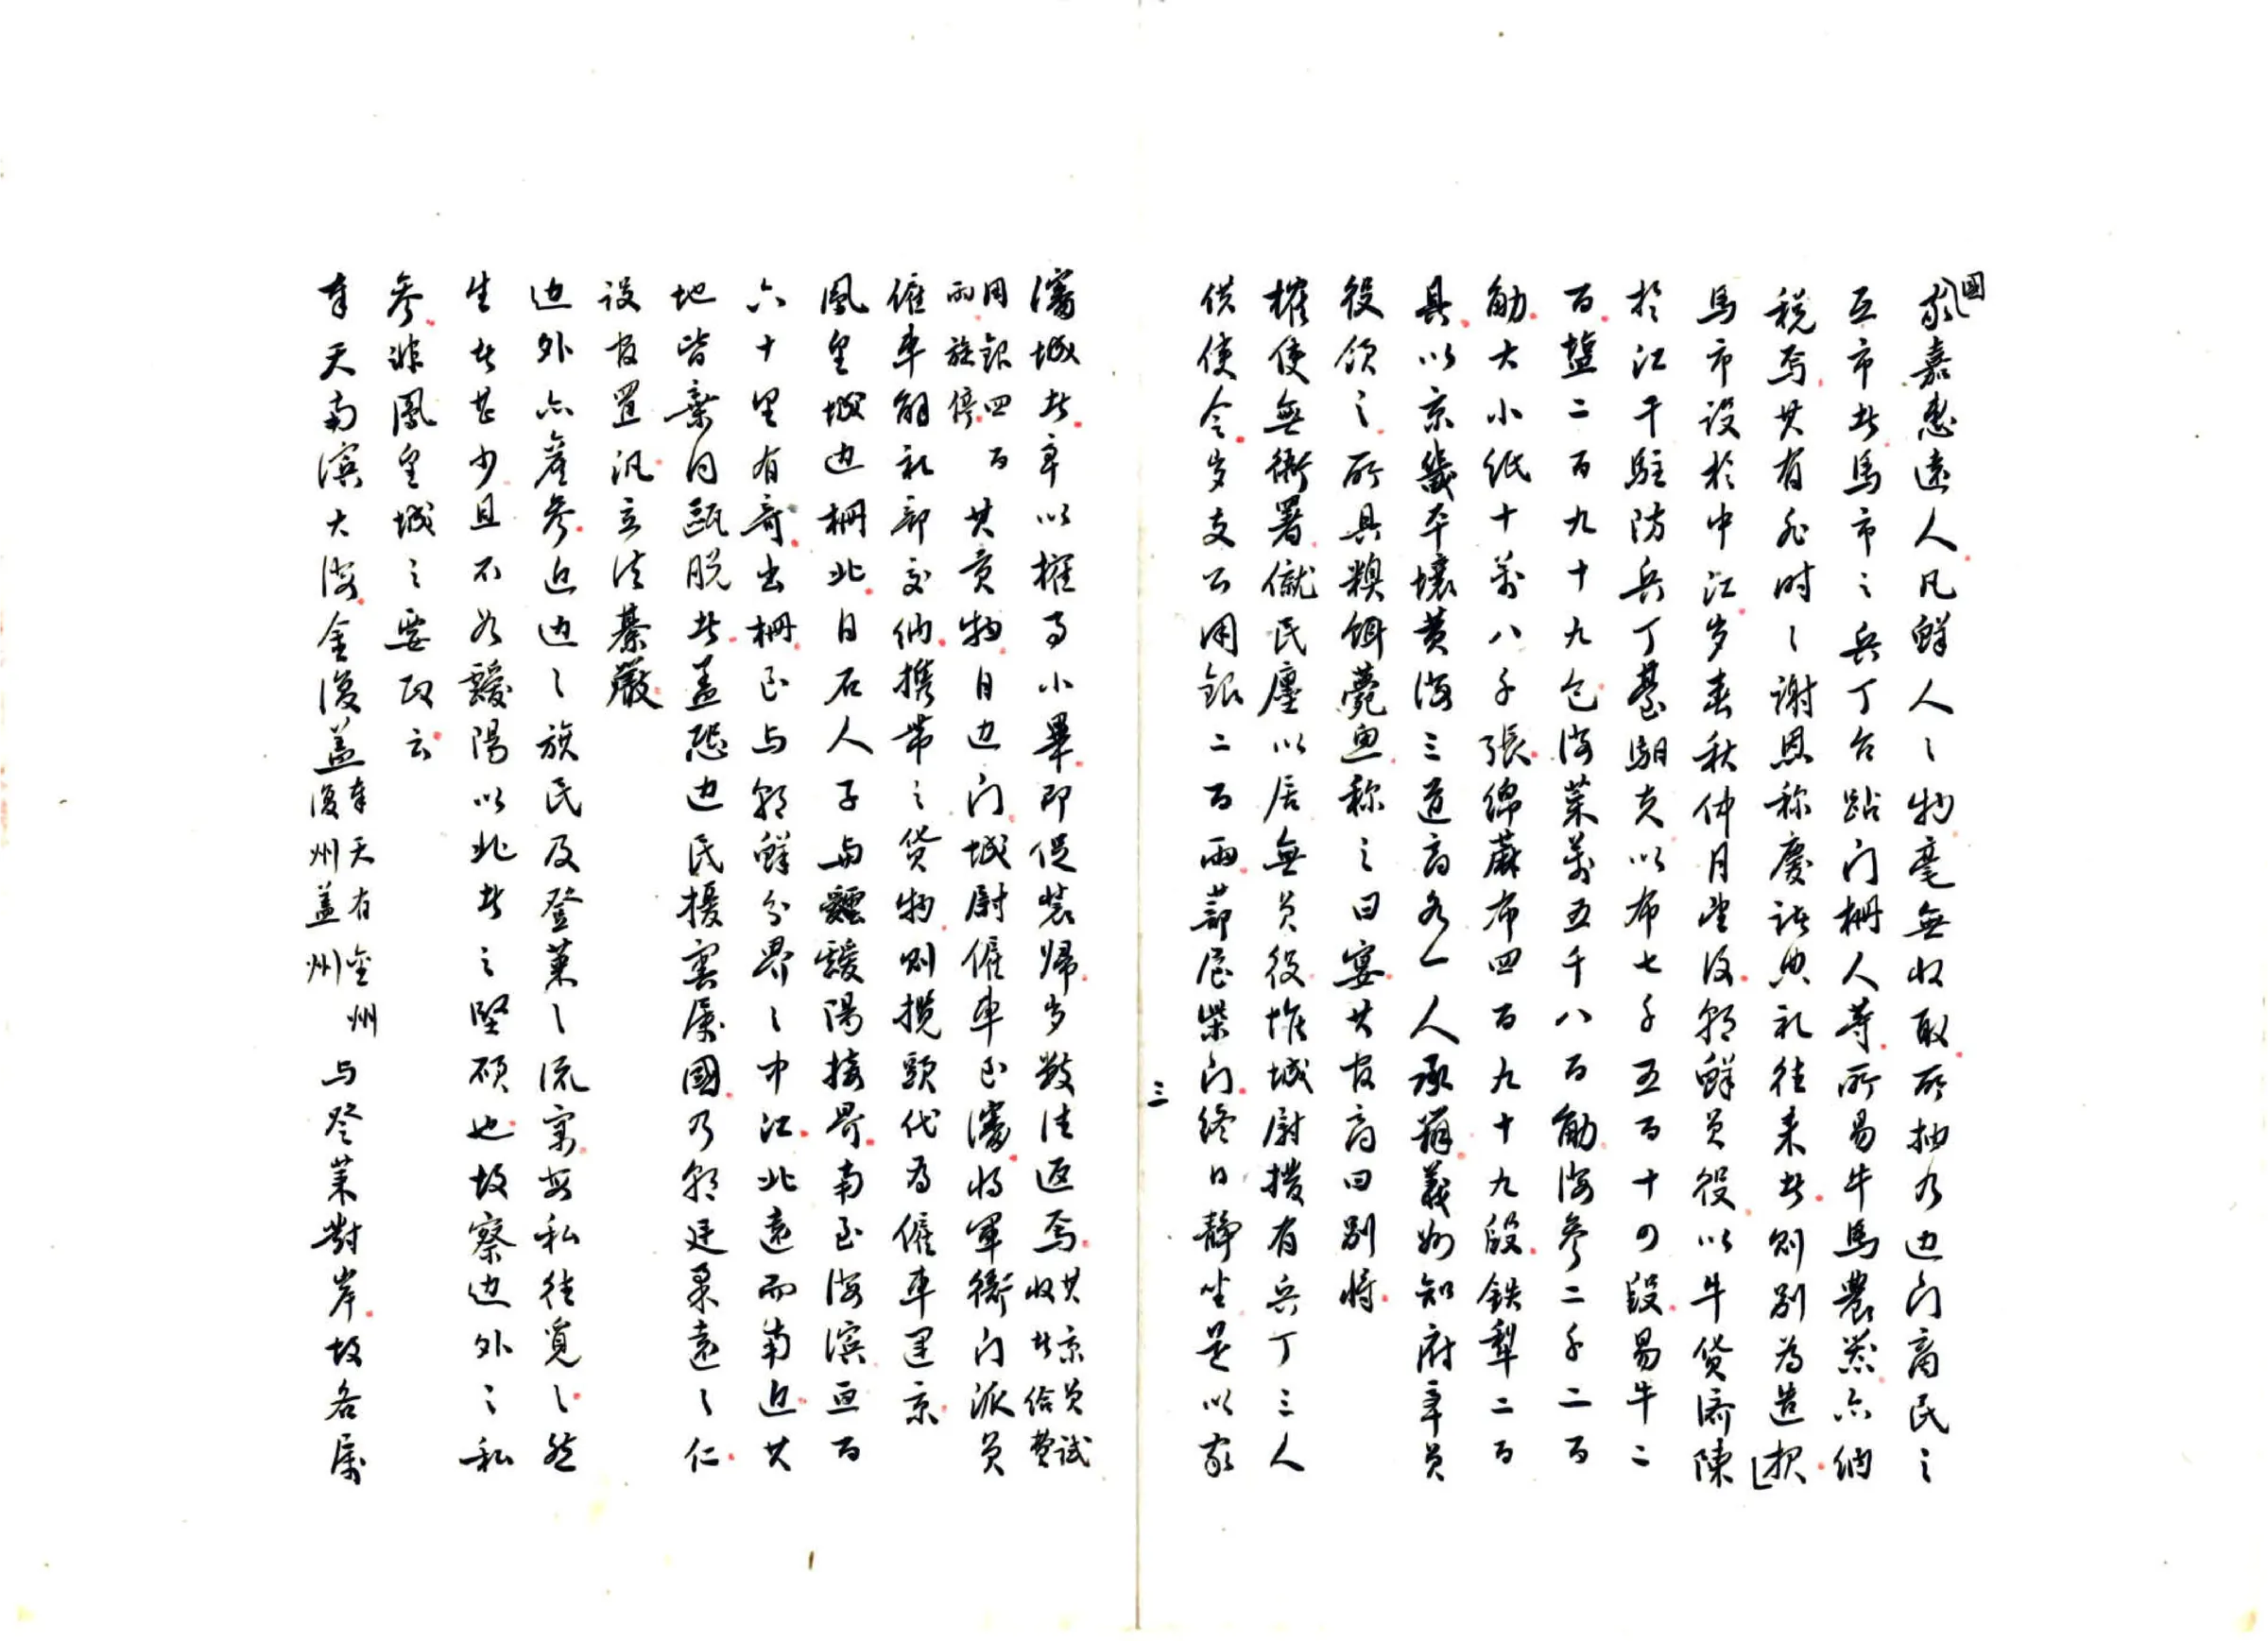 國
家嘉惠遠人凡鮮人之物毫無收取所抽乃边门商民之
互市者馬市之兵丁台跕门栅人等所易牛馬農器亦纳
税焉其有非时之謝恩称慶諸典礼往来者则别為造报
馬市設於中江岁春秋仲月望後朝鮮員役以牛货济陳
於江干駐防兵丁臺駅夫以布七千五百十四段易牛二
百盐二百九十九包海菜萬五千八百觔海參二千二百
觔大小纸十萬八千張绵蔴布四百九十九段鉄犁二百
具以京畿平壤黄海三道商各一人承辦義州知府率員
役领之所具糗餌薨魚称之曰宴其官商曰别将
榷使無衙署僦民廛以居無員役惟城尉撥有兵丁三人
供使令岁支公用銀二百兩蔀屋柴门终日静坐是以家
三
瀋城者率以榷事小畢即促装帰岁数往返焉其京員試收者给費
用銀四百兩旋停其贡物自边门城尉僱車至瀋将軍衙门派員
僱車解礼部交纳携带之货物则揽頭代为僱車運京
凰皇城边栅北自石人子与靉陽接界南至海滨亘百
六十里有奇出栅至与朝鮮分界之中江北遠而南近其
地皆棄同甌脱者盖恐边民擾害属國乃朝廷柔遠之仁
設官置汛立法綦嚴
边外亦産參近边之旗民及登莱之流寓每私往覓之然
生者甚少且不如靉陽以北者之堅硕也故察边外之私
參非鳳皇城之要政云
奉天南滨大海金復盖奉天有金州復州盖州与登莱對岸故各属